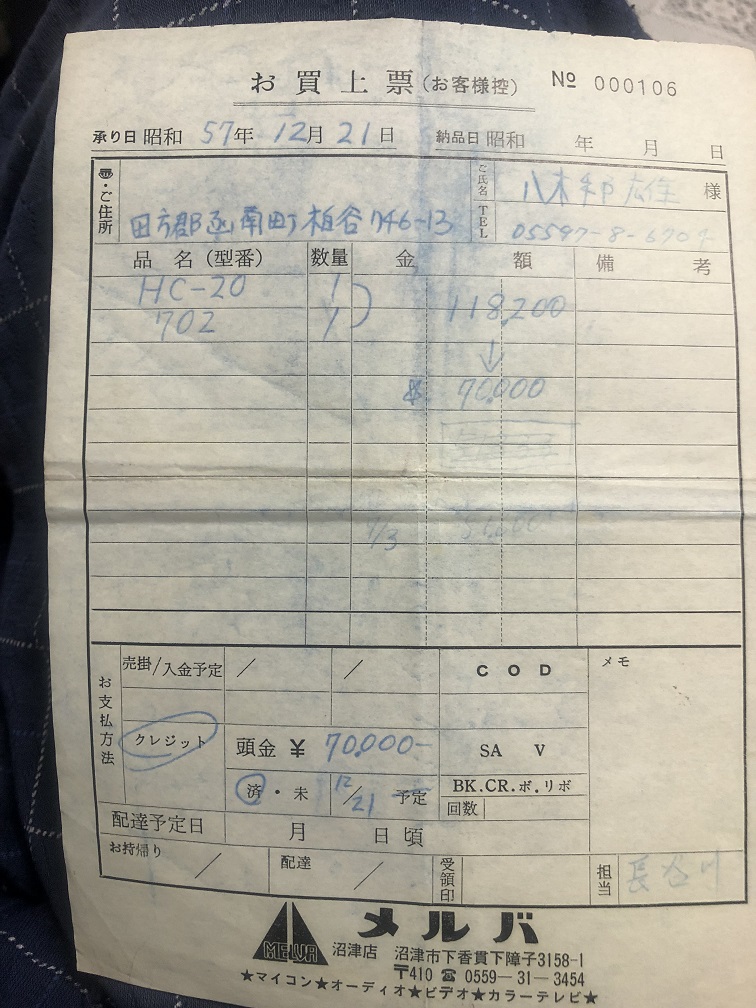 お買上票(お客様控) № 000106
承り日 昭和 57年 12月 21日 納品日 昭和 年 月 日
〠・ご住所 田方郡函南町柏谷746-13
ご氏名 八木 様
TEL 05597-8-
品名(型番) 数量 金額 備考
HC-20 1 118,200
702 1
↓
70,000
1/3
お支払方法
売掛/入金予定 / / COD メモ
クレジット 頭金 ¥ 70,000- SA V
済・未 12/21 予定 BK.CR.ボ.リボ
回数
配達予定日 月 日頃
お持帰り / 配達 / 受領印 担当 長谷川
MELVA メルバ
沼津店 沼津市下香貫下障子3158-1
〒410 ☎ 0559-31-3454
★マイコン★オーディオ★ビデオ★カラーテレビ★